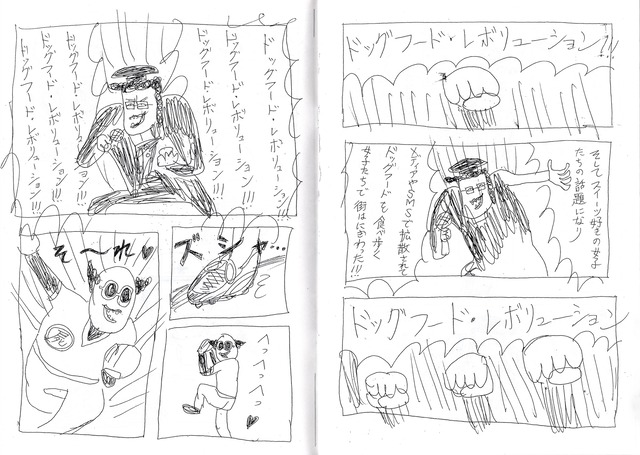 ドッグフード・レボリューション!!!
そしてスイーツ好きの女子
たちの話題になり
メディアやSMSで拡散されて
ドッグフードも食べ歩く
女子たちで街はにぎわった!!!
ドッグフード・レボリューション
ドッグフード・レボリューション!!!
ドッグフード・レボリューション!!!
ドッグフード・レボリューション!!!
ドッグフード・レボリューション!!!
ドッグフード・レボリューション!!!
ドッグフード・レボリューション!!!
ズシャ…
そ〜れ♥
へっへっへっ♥